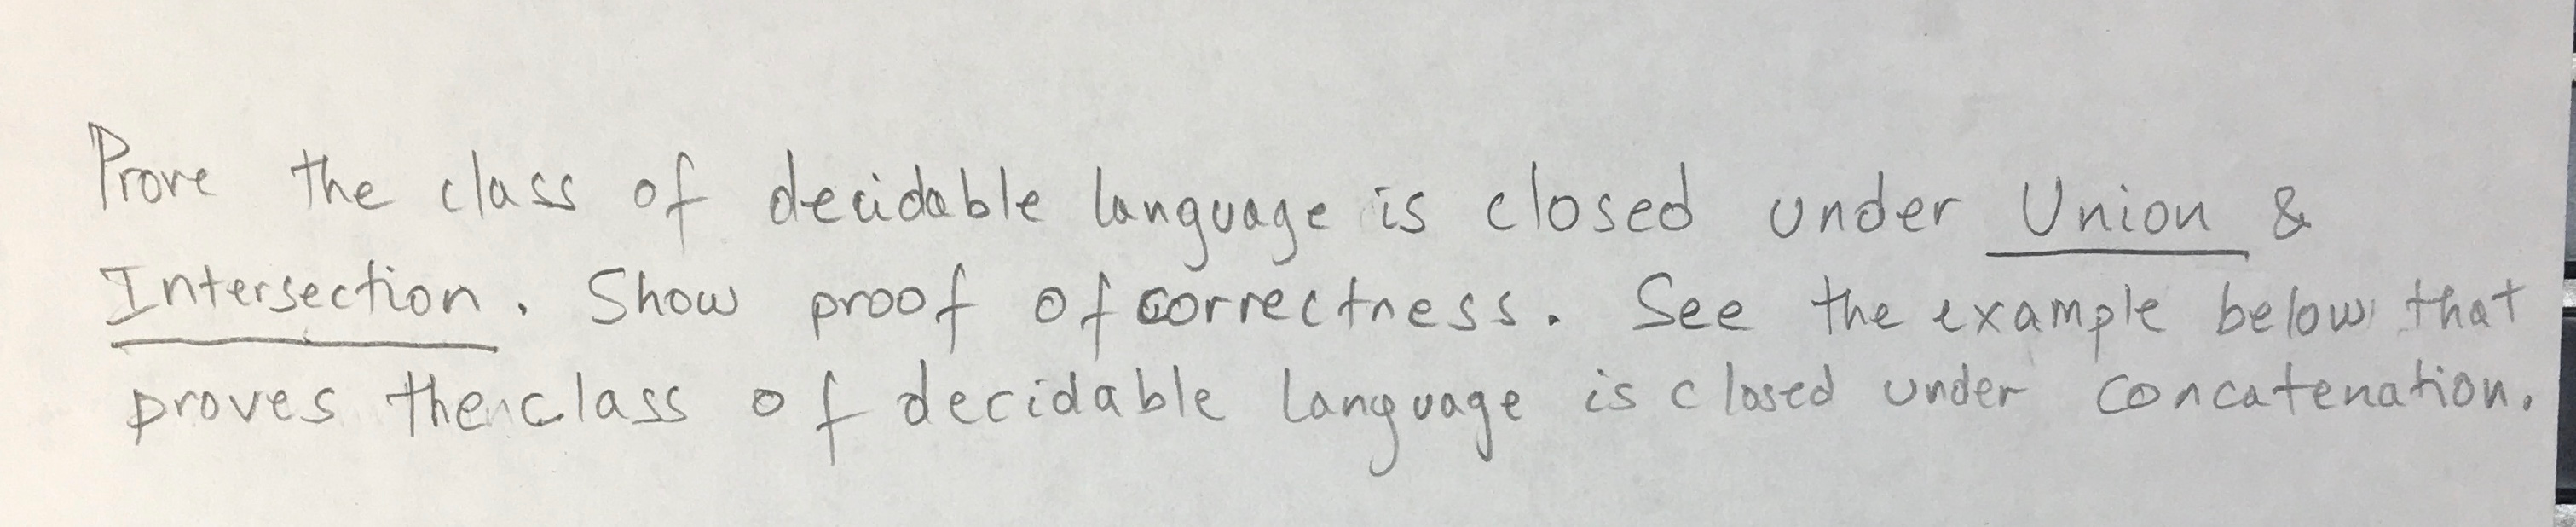 Prove the class of decidable language is closed under Union &
Intersection. Show proof of correctness. See the example below that
proves the class of decidable language is closed under concatenation.